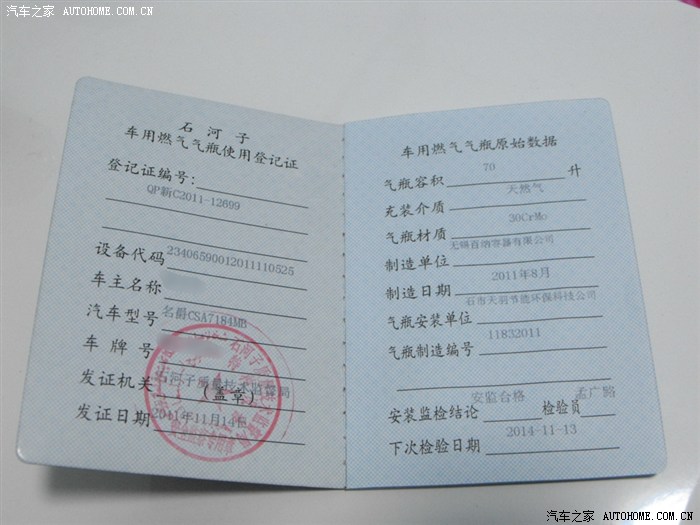 汽车之家 AUTOHOME.COM.CN
石河子
车用燃气气瓶使用登记证
登记证编号:
QP新C2011-12699
设备代码 23406590012011110525
车主名称
汽车型号 名爵CSA7184MB
车牌号
发证机关 石河子质量技术监督局
(盖章)
发证日期 2011年11月14日
车用燃气气瓶原始数据
气瓶容积 70 升
充装介质 天然气
气瓶材质 30CrMo
制造单位 无锡百纳容器有限公司
制造日期 2011年8月
气瓶安装单位 石市天羽节能环保科技公司
气瓶制造编号 11832011
安装监检结论 安监合格 检验员 孟广路
下次检验日期 2014-11-13
汽车之家 AUTOHOME.COM.CN